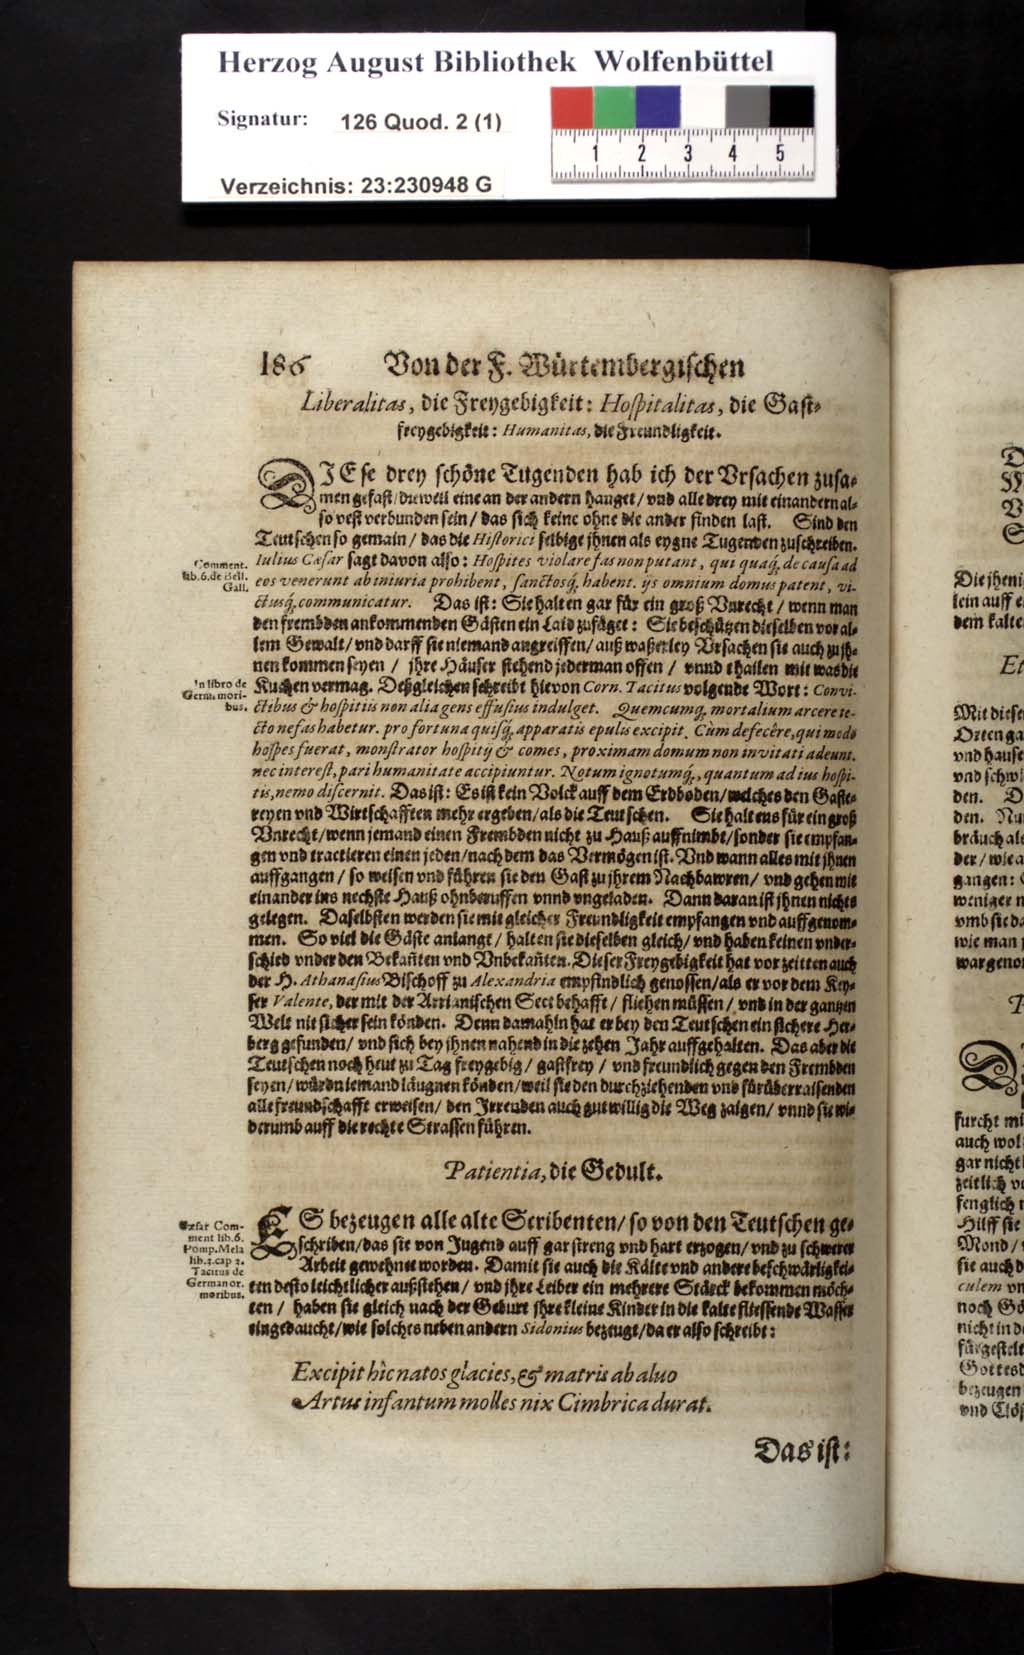 Herzog August Bibliothek Wolfenbüttel
Signatur: 126 Quod. 2 (1)
1 2 3 4 5
Verzeichnis: 23:230948 G
186 Von der F. Würtembergischen
Liberalitas, die Freygebigkeit: Hospitalitas, die Gast-
freygebigkeit: Humanitas, die Freundligkeit.
DIEse drey schöne Tugenden hab ich der Vrsachen zusa-
men gefast/ dieweil eine an der andern hanget/ vnd alle drey mit einandern al-
so vest verbunden sein/ das sich keine ohne die ander finden last. Sind den
Teutschen so gemain/ das die Historici selbige jhnen als eygne Tugenden zuschreiben.
Iulius Cæsar sagt davon also: Hospites violare fas non putant, qui quaq́, de causa ad
eos venerunt ab iniuria prohibent, sanctosq́, habent. ijs omnium domus patent, vi-
ctusq́, communicatur. Das ist: Sie halten gar für ein groß Vnrecht/ wenn man
den frembden ankommenden Gästen ein Laid zufüget: Sie beschützen dieselben vor al-
lem Gewalt/ vnd darff sie niemand angreiffen/ auß waßerley Vrsachen sie auch zu jh-
nen kommen seyen/ jhre Häuser stehend jederman offen/ vnnd thailen mit was die
Kuchen vermag. Deßgleichen schreibt hievon Corn. Tacitus volgende Wort: Convi-
ctibus & hospitiis non alia gens effusius indulget. Quemcumq́, mortalium arcere te-
cto nefas habetur. pro fortuna quisq́, apparatis epulis excipit. Cùm defecêre, qui modò
hospes fuerat, monstrator hospitij & comes, proximam domum non invitati adeunt.
nec interest, pari humanitate accipiuntur. Notum ignotumq́,, quantum ad ius hospi-
tis, nemo discernit. Das ist: Es ist kein Volck auff dem Erdboden/ welches den Gaste-
reyen vnd Wirtschafften mehr ergeben/ als die Teutschen. Sie haltens für ein groß
Vnrecht/ wenn jemand einen Frembden nicht zu Hauß auffnimbt/ sonder sie empfan-
gen vnd tractieren einen jeden/ nach dem das Vermögen ist. Vnd wann alles mit jhnen
auffgangen/ so weisen vnd führen sie den Gast zu jhrem Nachbawren/ vnd gehen mit
einander ins nechste Hauß ohnberuffen vnnd vngeladen. Dann daran ist jhnen nichts
gelegen. Daselbsten werden sie mit gleicher Freundligkeit empfangen vnd auffgenom-
men. So viel die Gäste anlangt/ halten sie dieselben gleich/ vnd haben keinen vnder-
schied vnder den Bekañten vnd Vnbekañten. Dieser Freygebigkeit hat vor zeitten auch
der H. Athanasius Bischoff zu Alexandria empfindlich genossen/ als er vor dem Key-
ser Valente, der mit der Arrianischen Sect behafft/ fliehen müssen/ vnd in der gantzen
Welt nit sicher sein könden. Denn damahln hat er bey den Teutschen ein sichere Her-
berg gefunden/ vnd sich bey jhnen nahend in die zehen Jahr auffgehalten. Das aber die
Teutschen noch heut zu Tag freygebig/ gastfrey/ vnd freundlich gegen den Frembden
seyen/ würdn iemand läugnen könden/ weil sie den durchziehenden vnd fürüberraisenden
alle freundschafft erweisen/ den Irrenden auch gutwillig die Weg zaigen/ vnnd sie wi-
derumb auff die rechte Strassen führen.
Patientia, die Gedult.
ES bezeugen alle alte Scribenten/ so von den Teutschen ge-
schriben/ das sie von Jugend auff gar streng vnd hart erzogen/ vnd zu schwerer
Arbeit gewehnet worden. Damit sie auch die Kälte vnd andere beschwärligkei-
ten desto leichtlicher außstehen/ vnd jhre Leiber ein mehrere Stärck bekommen möch-
ten/ haben sie gleich nach der Geburt jhre kleine Kinder in die kalte fliessende Wasser
eingedaucht/ wie solches neben andern Sidonius bezeugt/ da er also schreibt:
Excipit hìc natos glacies, & matris ab aluo
Artus infantum molles nix Cimbrica durat.
Das ist:
Comment.
lib. 6. de Bell.
Gall.
In libro de
Germ. mori-
bus.
Cæsar Com-
ment lib. 6.
Pomp. Mela
lib. 3. cap 2.
Tacitus de
German or.
moribus.
Die jheni
lein auff e
dem kalte
Et
Mit diese
Orten ga
vnd hause
vnd schwi
den. D
den. Nu
bräuch ale
der/ wie a
gangen:
weniger n
vmb sie da
wie man
war geno
furcht mi
auch wol
gar nicht
zeitlich v
fenglich
Hilff sie
Mond/
sie auch d
culem vn
noch Gö
nicht in d
fürgestelt
Gottesd
bezeugen
vnd Clös